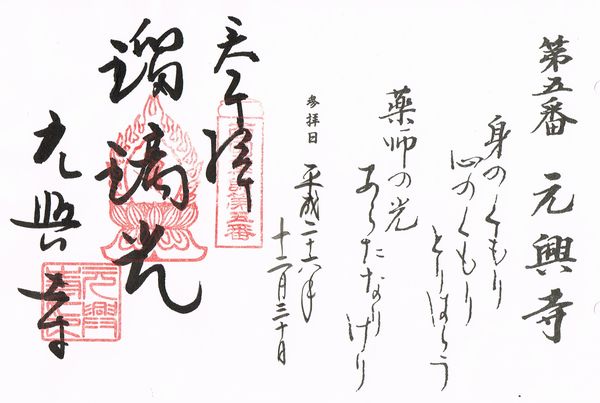 第五番 元興寺
身のくもり
心のくもり
とりはらう
薬師の光
あらたなり
けり
参拝日 平成
十二月三十日
第五番
瑠璃光
元興寺